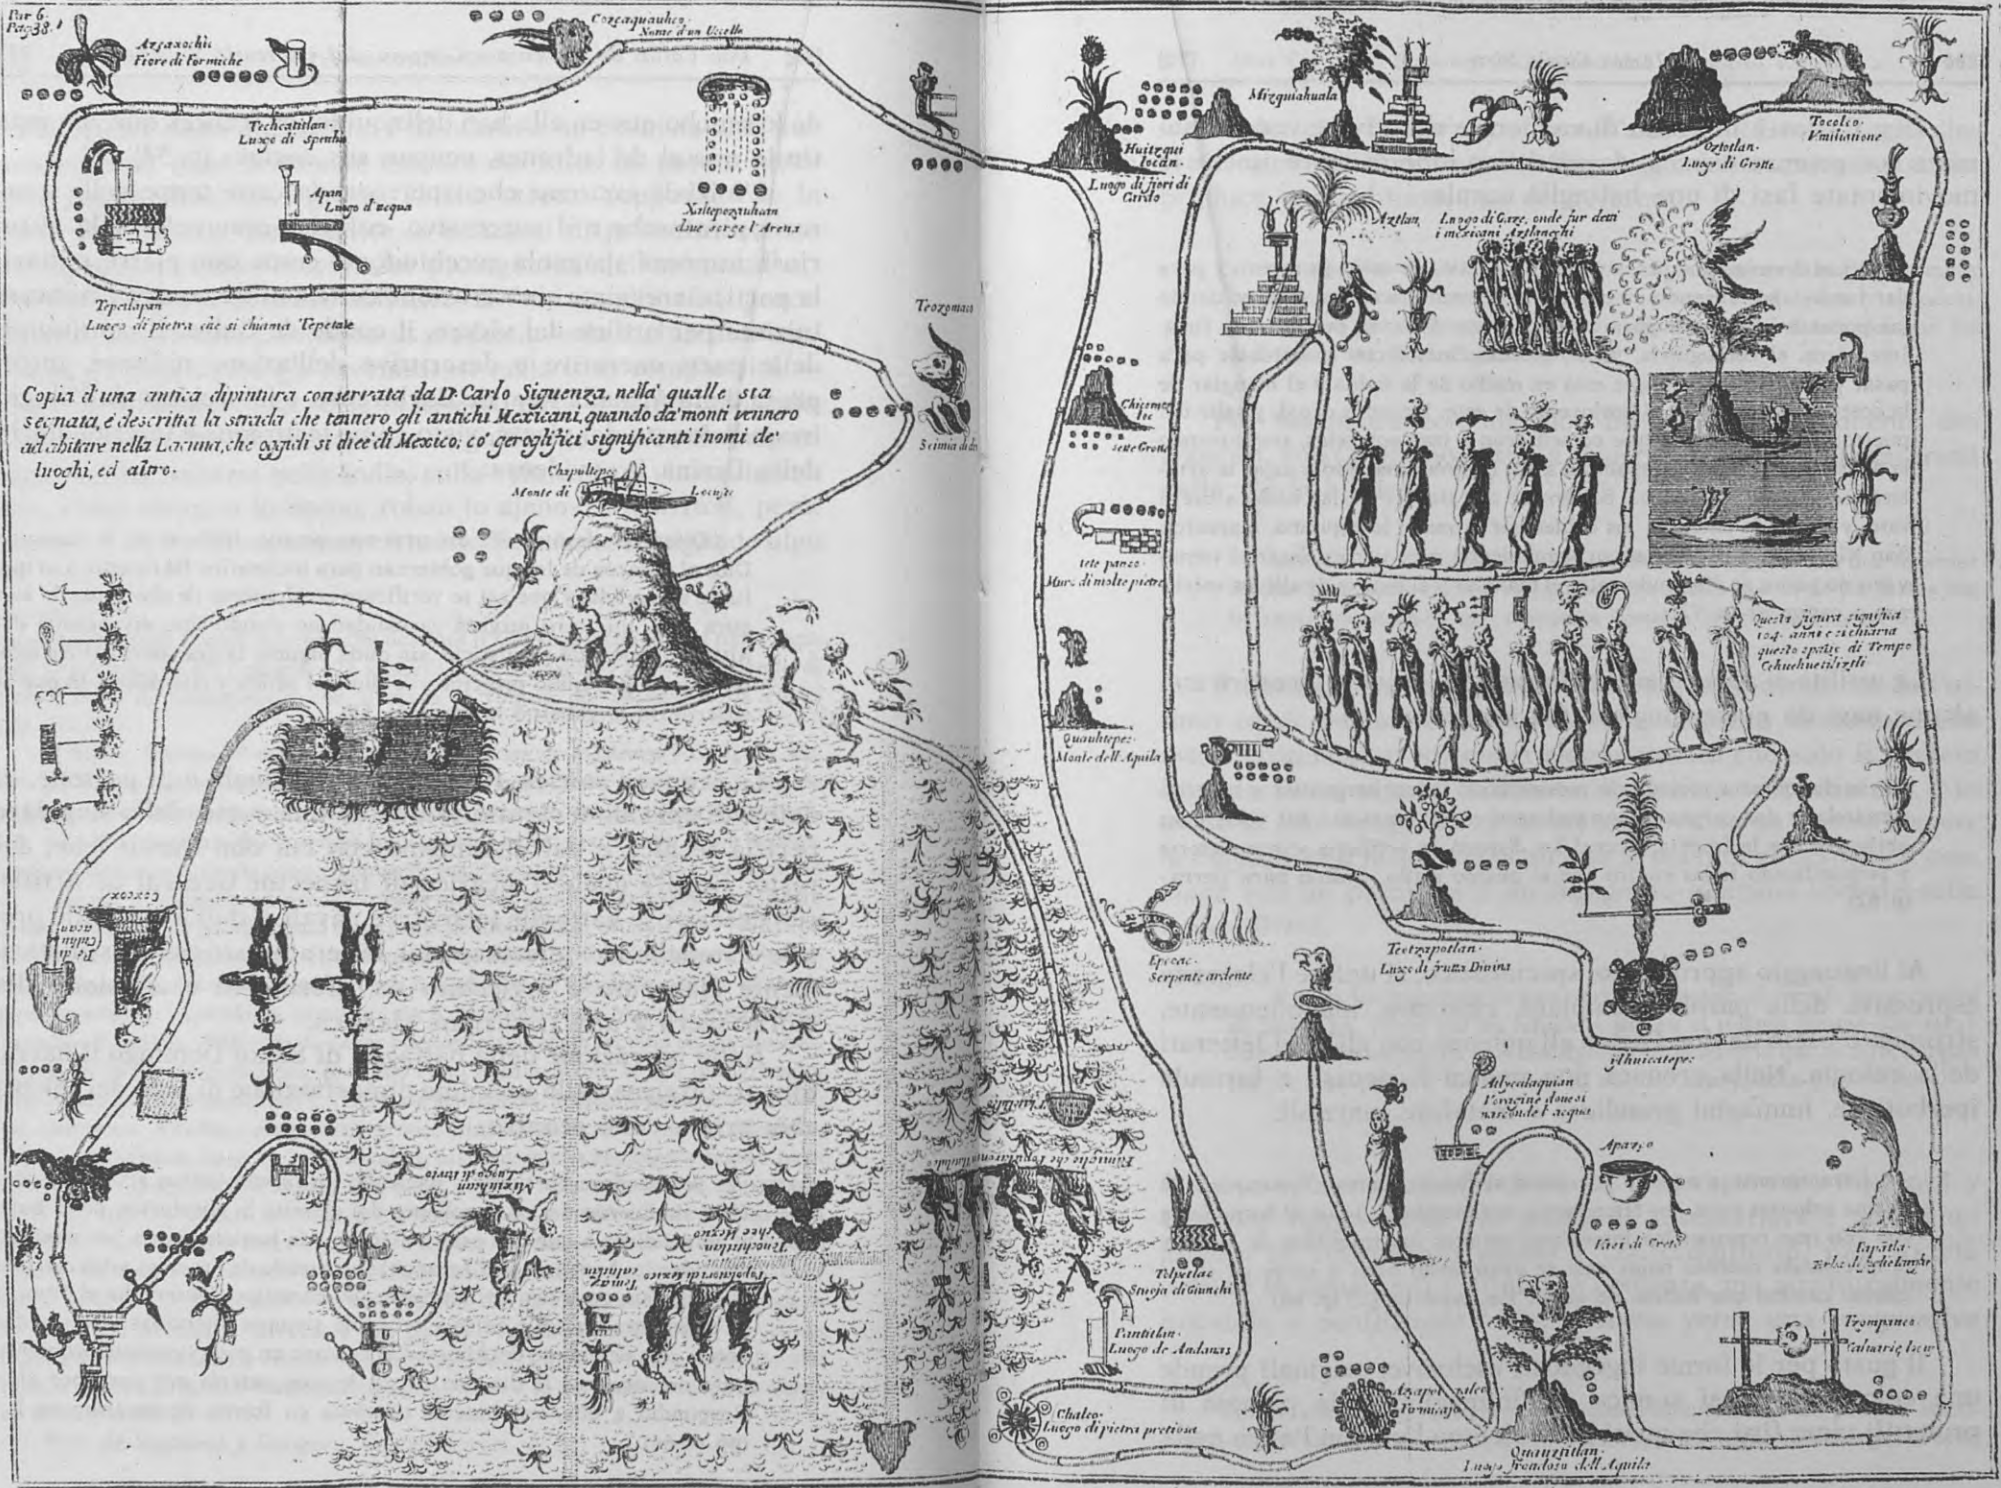 Par 6.
Pag 38.
Azsaxochic
Fiore di Formiche
Cozcaquauhco
Nome d'un Uccello
Techcatitlan
Luogo di
Apan
Luogo d'acqua
Xaltepozauhcan
dove serge l'Arena
Tepetlapan
Luogo di pietra che si chiama Tepetate
Teozomaco
Scimia di
Copia d'una antica dipintura conservata da D. Carlo Siguenza, nella qualle sta
segnata, e descritta la strada che tennero gli antichi Mexicani, quando da' monti vennero
ad abitare nella Lacuna, che oggidi si dice di Mexico; co' geroglifici significanti i nomi de'
luoghi, ed altro.
Chapoltepec
Monte di Locuste
Huitzqui
locan
Luogo di fiori di
Cardo
Mizquiahuala
Oztotlan
Luogo di Grotte
Tocolco
Umiliazione
Aztlan
Luogo di Garze, onde fur detti
i mexicani Aztlanechi
sette Grotte
Tete panco
Muro di molte pietre
Quauhtepec
Monte dell'Aquila
Questa figura significa
104. anni e si chiama
questo spatio di Tempo
Cehuehuetiliztli
Epcoac
Serpente ardente
Teotzapotlan
Luogo di frutta Divina
Ilhuicatepec
Colhuacan
Atlycalaquian
Voragine dove si
nasconde l'acqua
Apazco
Vasi di Creta
Papatla
Erba di foglie larghe
Tzompanco
Calvariæ locus
Mixiuhcan
Luogo di parto
Tenochtitlan
che è Mexico
Famiglie che
Tolpetlac
Stuoja di Giunchi
Pantitlan
Luogo de Andanas
Chalco
Luogo di pietra pretiosa
Azcapotzalco
Formicajo
Quauhtitlan
Luogo frondoso dell'Aquila